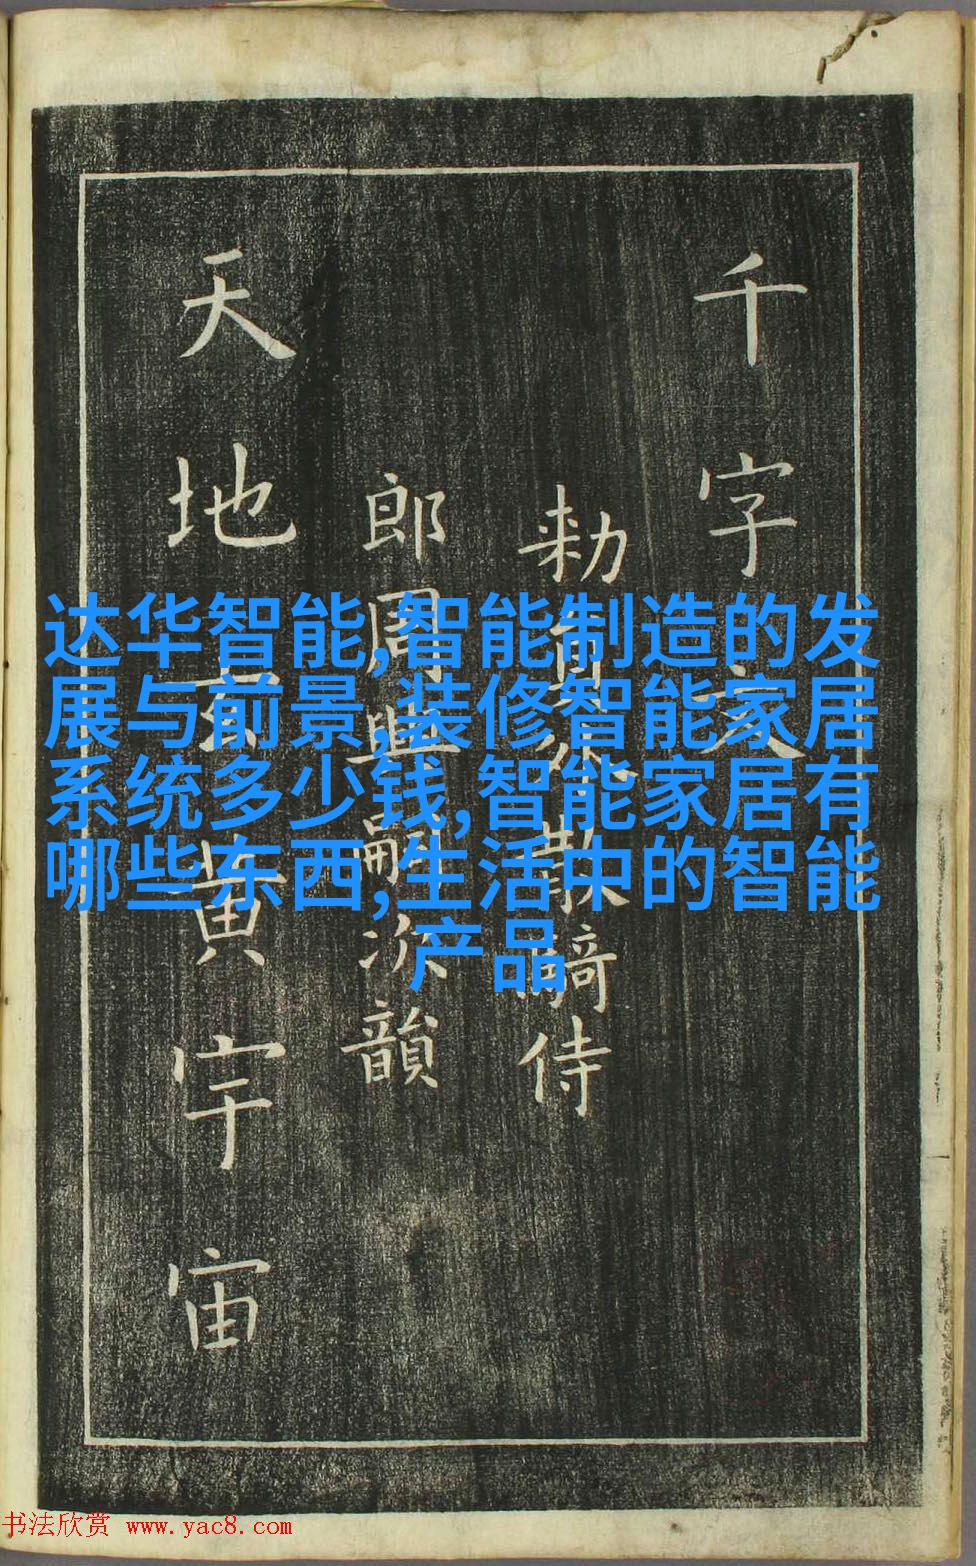 千字文
勑員外散騎侍
郎周興嗣次韻
天地玄黄宇宙
达华智能,智能制造的发
展与前景,装修智能家居
系统多少钱,智能家居有
哪些东西,生活中的智能
产品
书法欣赏 www.yac8.com